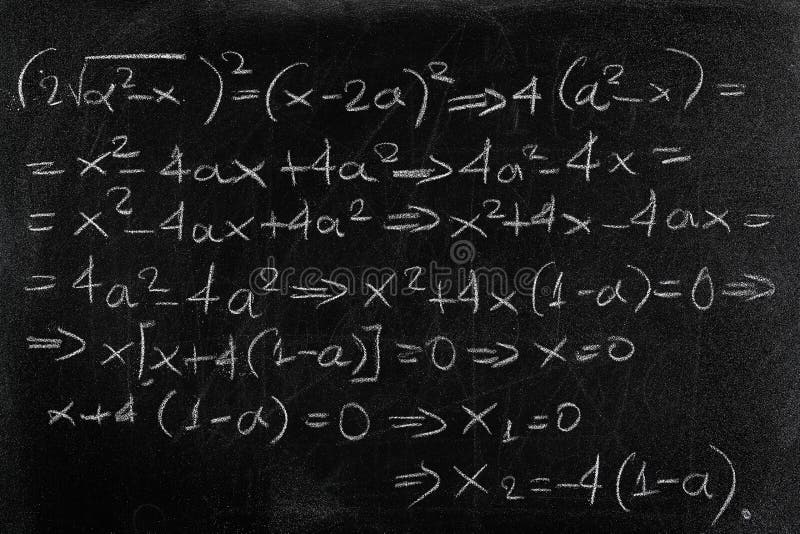 (2√(a²-x))²=(x-2a)²⇒4(a²-x)=
=x²-4ax+4a²→4a²-4x=
=x²-4ax+4a²⇒x²+4x-4ax=
=4a²-4a²⇒x²+4x(1-a)=0⇒
⇒x[x+4(1-a)]=0⇒x=0
x+4(1-a)=0⇒x₁=0
⇒x₂=-4(1-a).
dreamstime